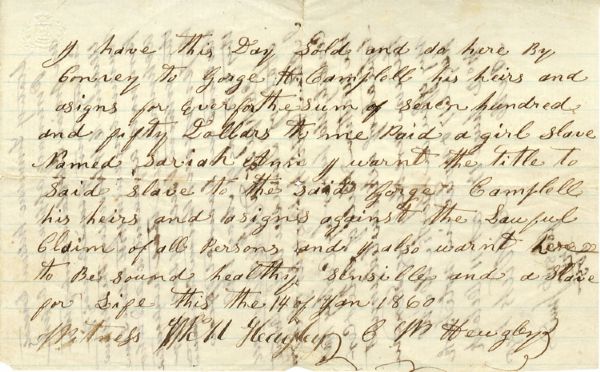 I have this Day Sold and do here By
Convey to Gorge H Campbell his heirs and
asigns for ever for the sum of Seven hundred
and fifty Dollars to me Paid a girl slave
Named Sariah Ann I warnt the title to
Said slave to the said Gorge Campbell
his heirs and asigns against the Lawful
Claim of all Persons and I also warnt her
to Be sound healthy sensible and a Slave
for Life this the 14 of Jan 1860
Witness Hugley C M Hewgley